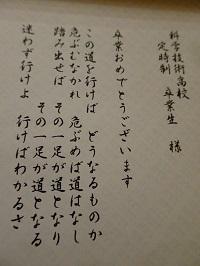 科学技術高校
定時制 卒業生 様
卒業おめでとうございます
この道を行けば どうなるものか
危ぶむなかれ 危ぶめば道はなし
踏み出せば その一足が道となり
その一足が道となる
迷わず行けよ 行けばわかるさ